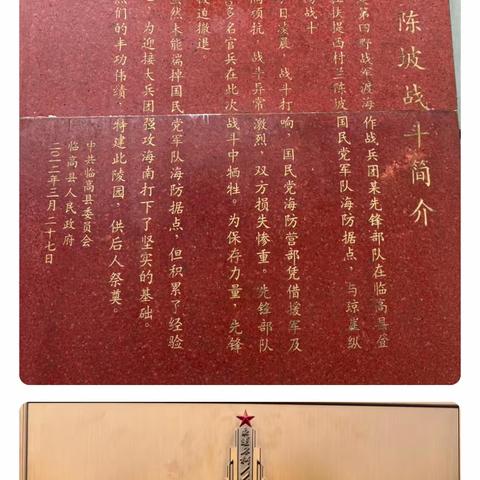 陈坡战斗简介
第四野战军渡海作战兵团某先锋部队在临高县登
扶提西村兰陈坡国民党军队海防据点，与琼崖纵
战斗
日凌晨，战斗打响，国民党海防营部凭借援军及
顽抗，战斗异常激烈，双方损失惨重。先锋部队
多名官兵在此次战斗中牺牲。为保存力量，先锋
被迫撤退。
虽然未能端掉国民党军队海防据点，但积累了经验
，为迎接大兵团强攻海南打下了坚实的基础。
们的丰功伟绩，特建此陵园，供后人祭奠。
中共临高县委员会
临高县人民政府
二〇一二年三月二十七日